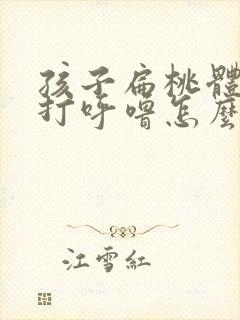 孩子扁桃體
打呼嚕怎麼
江雪紅